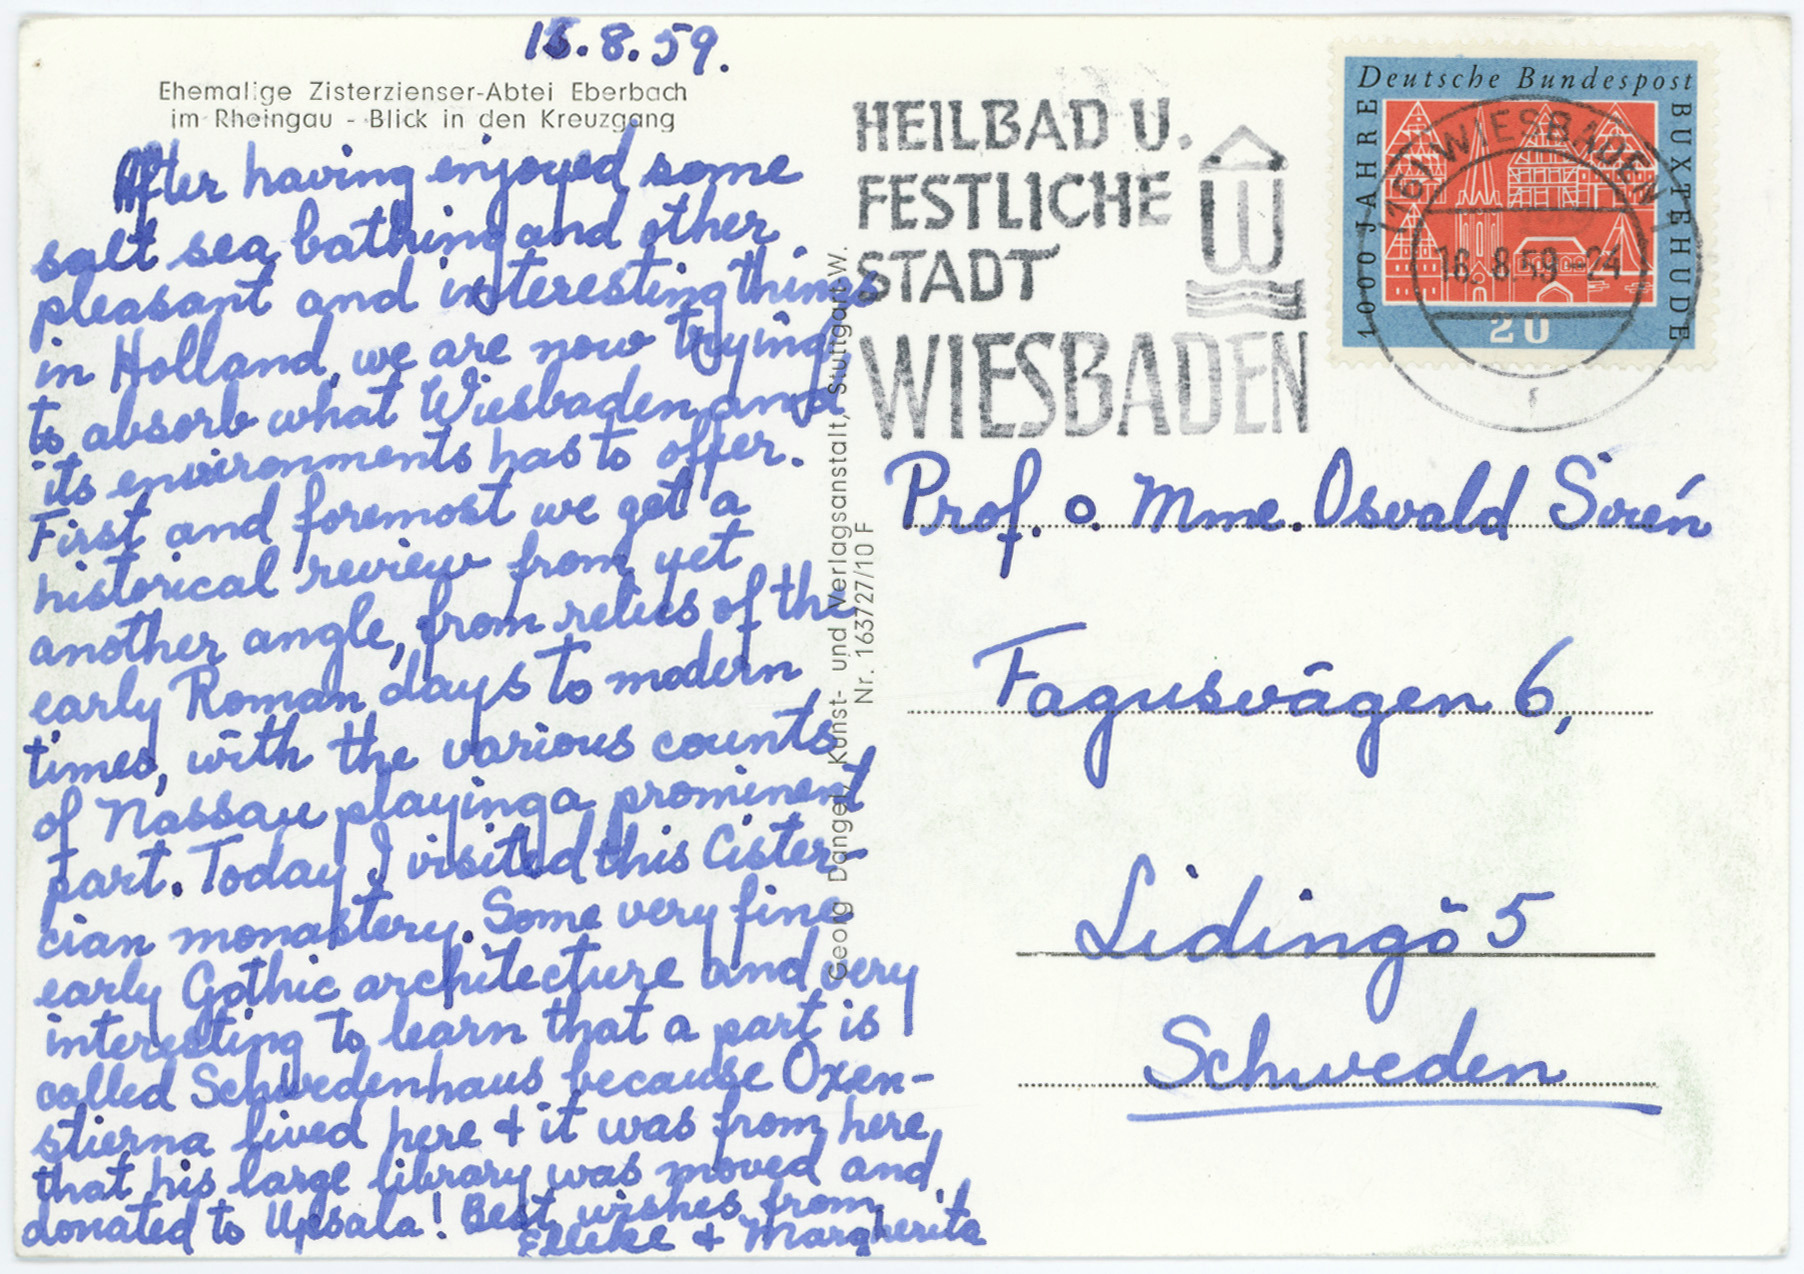 15.8.59.
Ehemalige Zisterzienser-Abtei Eberbach
im Rheingau - Blick in den Kreuzgang
After having enjoyed some
salt sea bathing and other
pleasant and interesting things
in Holland, we are now trying
to absorb what Wiesbaden and
its environments has to offer.
First and foremost we get a
historical review from yet
another angle, from relics of the
early Roman days to modern
times, with the various counts
of Nassau playing a prominent
part. Today I visited this Cister-
cian monastery. Some very fine
early Gothic architecture and very
interesting to learn that a part is
called Schwedenhaus because Oxen-
stierna lived here + it was from here,
that his large library was moved and
donated to Upsala! Best wishes from
+ Margherita
Georg Dangel, Kunst- und Verlagsanstalt, Stuttgart-W.
Nr. 163727/10 F
HEILBAD U.
FESTLICHE
STADT
WIESBADEN
W
Deutsche Bundespost
1000 JAHRE
BUXTEHUDE
20
(16) WIESBADEN 1
16.8.59-24
f
Prof. o. Mme. Osvald Sirén
Fagusvägen 6,
Lidingö 5
Schweden